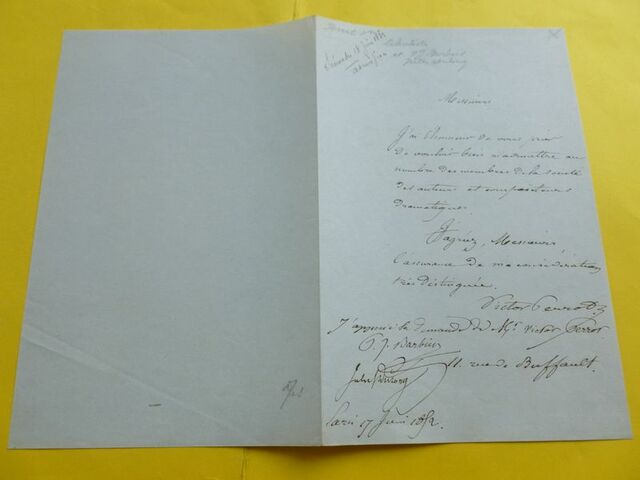 Messieurs
J'ai l'honneur de vous prier
de vouloir bien m'admettre au
nombre des membres de la société
des auteurs et compositeurs
dramatiques.
J'agréez, Messieurs,
l'assurance de ma considération
très distinguée.
Victor Perrot
J'appuie la demande de Mr. Victor Perrot.
P. J. Barbier
11 rue de Buffault.
Jules
Paris 17 Juin 1852